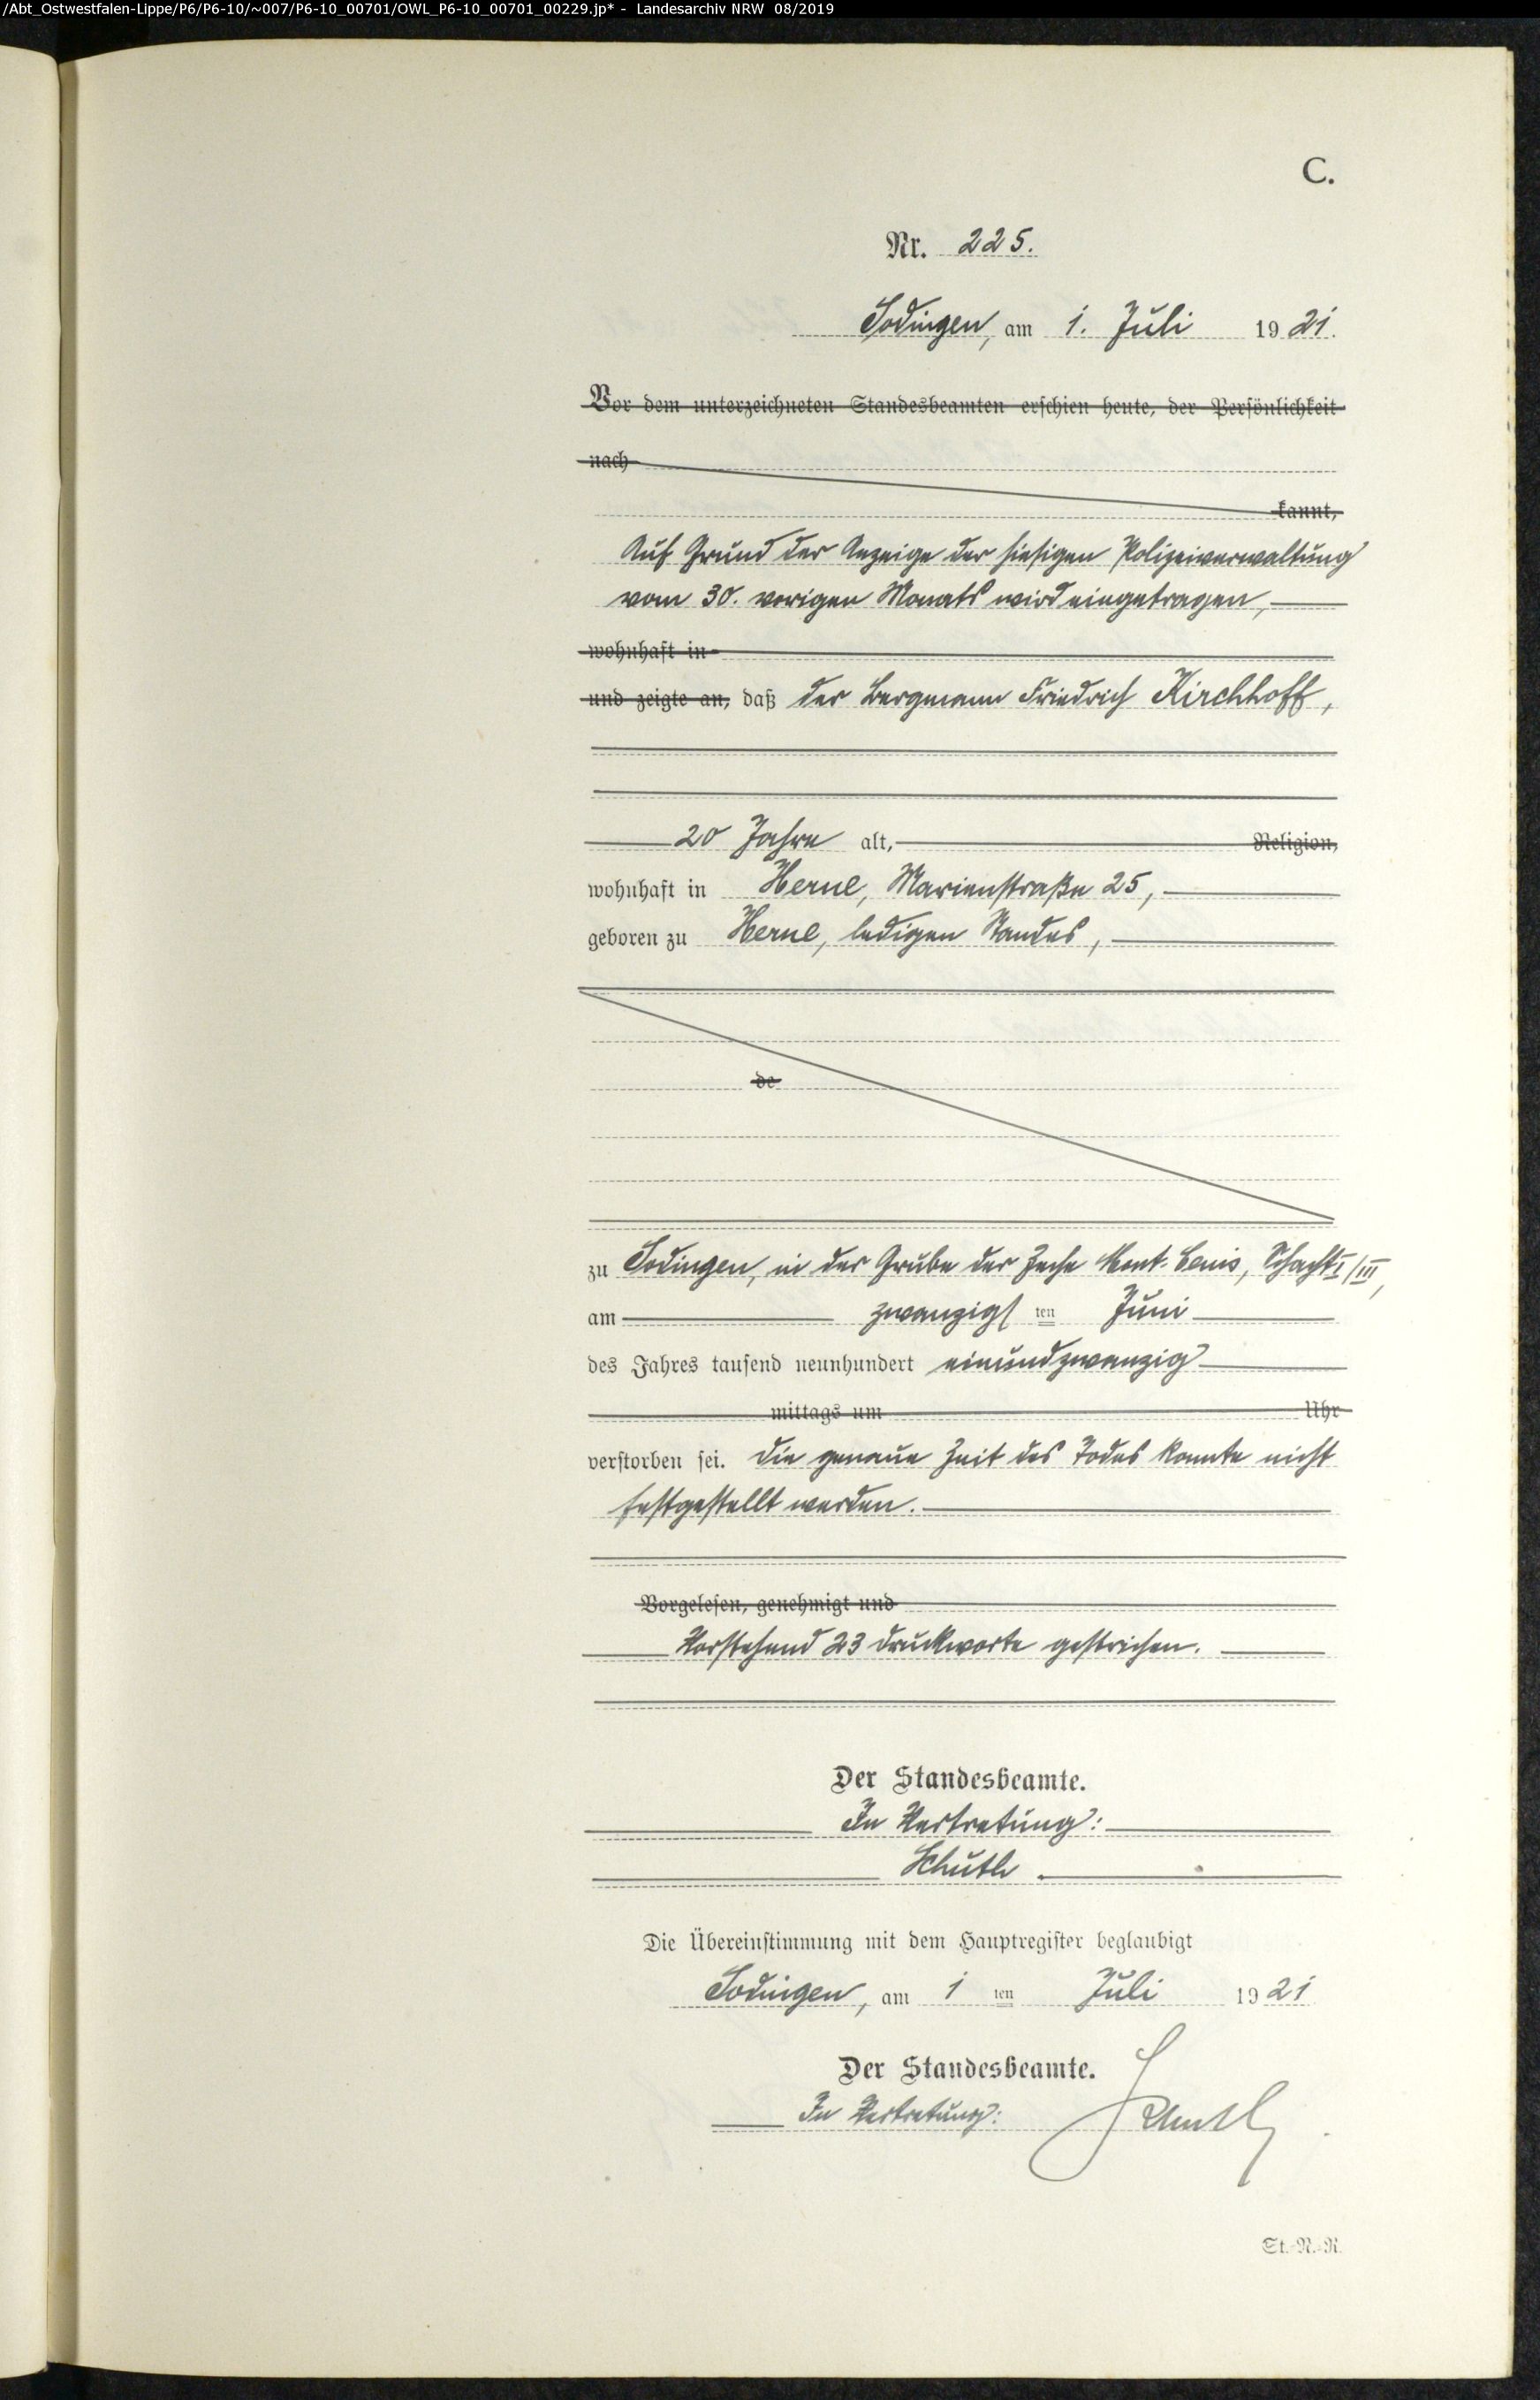 /Abt_Ostwestfalen-Lippe/P6/P6-10/~007/P6-10_00701/OWL_P6-10_00701_00229.jp* - Landesarchiv NRW 08/2019
C.
Nr. 225.
Sodingen, am 1. Juli 1921.
Vor dem unterzeichneten Standesbeamten erschien heute, der Persönlichkeit
nach
kannt,
Auf Grund der Anzeige der hiesigen Polizeiverwaltung
vom 30. vorigen Monats wird eingetragen,
wohnhaft in
und zeigte an, daß der Bergmann Friedrich Kirchhoff,
20 Jahre alt, Religion,
wohnhaft in Herne, Marienstraße 25,
geboren zu Herne, ledigen Standes,
de
zu Sodingen, in der Grube der Zeche Mont-Cenis, Schacht I/III,
am zwanzigsten Juni
des Jahres tausend neunhundert einundzwanzig
mittags um Uhr
verstorben sei. Die genaue Zeit des Todes konnte nicht
festgestellt werden.
Vorgelesen, genehmigt und
Vorstehend 23 Druckworte gestrichen.
Der Standesbeamte.
In Vertretung:
Schuth.
Die Übereinstimmung mit dem Hauptregister beglaubigt
Sodingen, am 1 ten Juli 1921
Der Standesbeamte.
In Vertretung: Schuth
St.-N.-R.